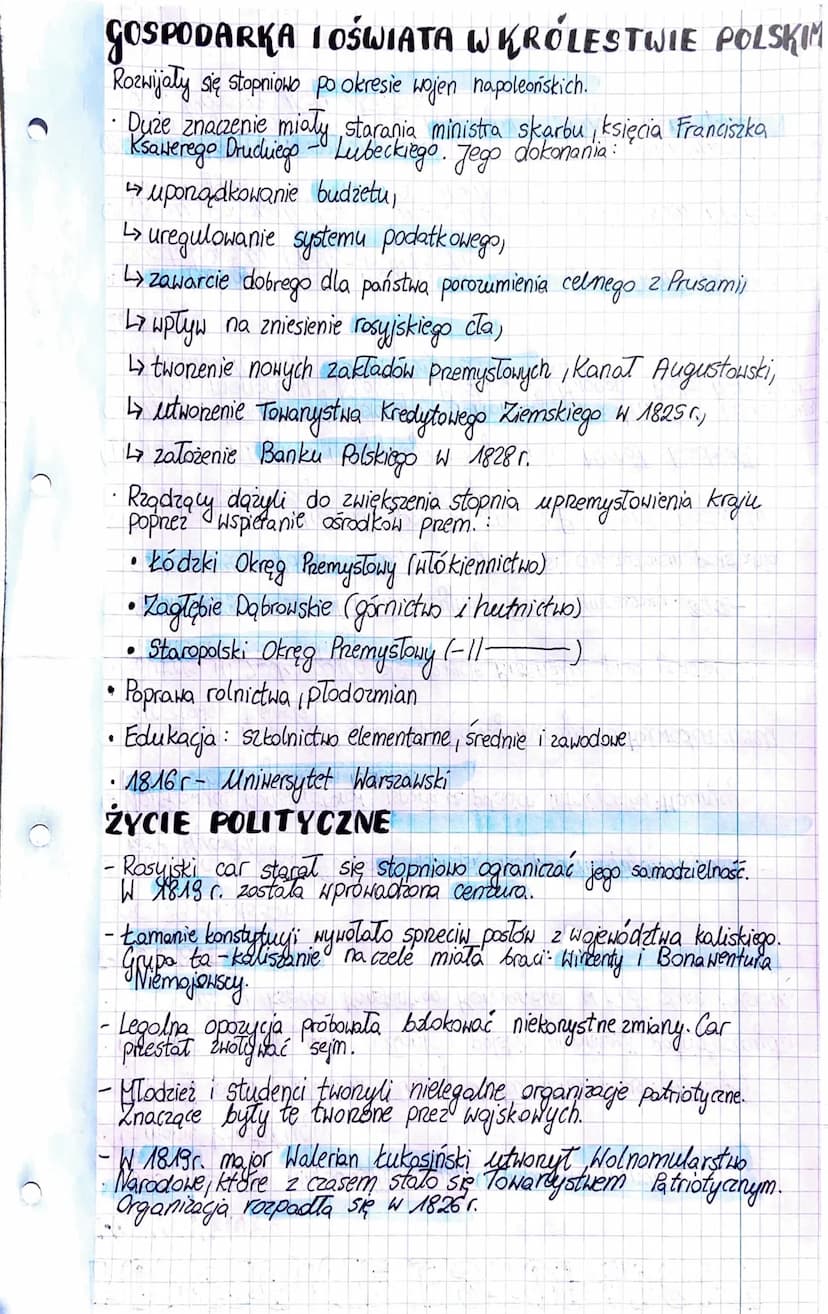 GOSPODARKA I OŚWIATA W KRÓLESTWIE POLSKIM
Rozwijały się stopniowo po okresie wojen napoleońskich.
· Duże znaczenie miały starania ministra skarbu, księcia Franciszka
Ksawerego Druckiego - Lubeckiego. Jego dokonania:
↳ uporządkowanie budżetu,
↳ uregulowanie systemu podatkowego,
↳ zawarcie dobrego dla państwa porozumienia celnego z Prusami,
↳ wpływ na zniesienie rosyjskiego cła,
↳ tworzenie nowych zakładów przemysłowych, Kanał Augustowski,
↳ utworzenie Towarzystwa Kredytowego Ziemskiego w 1825 r.,
↳ założenie Banku Polskiego w 1828 r.
· Rządzący dążyli do zwiększenia stopnia uprzemysłowienia kraju
poprzez wspieranie ośrodków przem.:
• Łódzki Okręg Przemysłowy (włókiennictwo)
• Zagłębie Dąbrowskie (górnictwo i hutnictwo)
• Staropolski Okręg Przemysłowy (-||-)
• Poprawa rolnictwa, płodozmian
• Edukacja: szkolnictwo elementarne, średnie i zawodowe
· 1816r - Uniwersytet Warszawski
ŻYCIE POLITYCZNE
- Rosyjski car starał się stopniowo ograniczać jego samodzielność.
W 1819 r. została wprowadzona cenzura.
- Łamanie konstytucji wywołało sprzeciw posłów z województwa kaliskiego.
Grupa ta - kaliszanie na czele miała braci: Wincenty i Bonawentura
Niemojowscy.
- Legalna opozycja próbowała bzlokować niekorzystne zmiany. Car
przestał zwoływać sejm.
- Młodzież i studenci tworzyli nielegalne organizacje patriotyczne.
Znaczące były te tworzone przez wojskowych.
- W 1819r. major Walerian Łukasiński utworzył Wolnomularstwo
Narodowe, które z czasem stało się Towarzystwem Patriotycznym.
Organizacja rozpadła się w 1826 r.